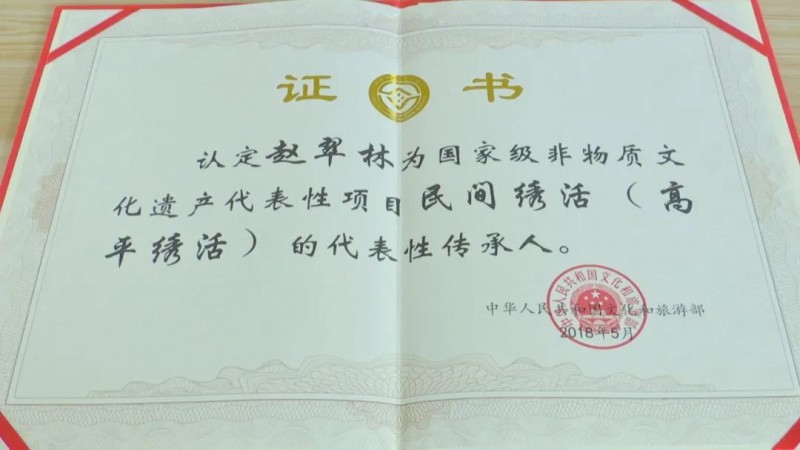 证书
认定赵翠林为国家级非物质文
化遗产代表性项目民间绣活（高
平绣活）的代表性传承人。
中华人民共和国文化和旅游部
2018年5月
中华人民共和国文化和旅游部